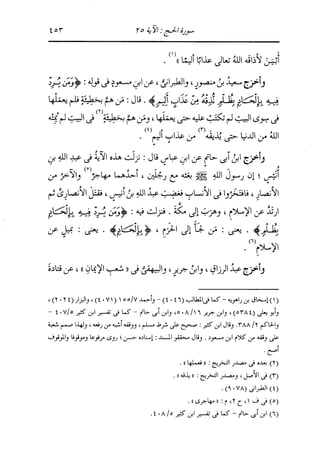 سورة الحج : الآية ٢٥ ٤٥٣
أَبْيَنَ لأذاقه اللهُ تعالى عذابًا أليمًا » (١) .
وأخرج سعيدُ بنُ منصورٍ ، والطبرانىُّ ، عن ابنِ مسعودٍ فى قوله : ﴿ وَمَن يُرِدْ
فِيهِ بِإِلْحَادٍ بِظُلْمٍ نُذِقْهُ مِنْ عَذَابٍ أَلِيمٍ ﴾ . قال : مَن همَّ بخطيئةٍ فلم يعملْها
فى سِوى البيتِ لم تُكتَبْ عليه حتى يعملَها ، ومَن همَّ بخطيئةٍ (٢) فى البيتِ لم يُمِتْه
اللهُ من الدنيا حتى يُذيقَه (٣) من عذابٍ أليمٍ (٤) .
وأخرج ابنُ أبى حاتمٍ عن ابنِ عباسٍ قال : نزلت هذه الآيةُ فى عبدِ اللهِ بنِ
أُنَيْسٍ ؛ إن رسولَ اللهِ ﷺ بعَثه مع رجلَيْن ، أحدُهما مهاجرٌ (٥) والآخرُ من
الأنصارِ ، فافتخَروا فى الأنسابِ فغضِب عبدُ اللهِ بنُ أُنيسٍ ، فقتَل الأنصارىَّ ثم
ارتدَّ عن الإسلامِ ، وهرَب إلى مكةَ . فنزلت فيه : ﴿ وَمَن يُرِدْ فِيهِ بِإِلْحَادٍ
بِظُلْمٍ ﴾ . يعنى : مَن لجَأ إلى الحرَمِ ، ﴿ بِإِلْحَادٍ ﴾ . يعنى : بميلٍ عن
الإسلامِ (٦) .
وأخرج عبدُ الرزاقِ ، وابنُ جريرٍ ، والبيهقىُّ فى « شعبِ الإيمانِ » ، عن قتادةَ
(١) إسحاق بن راهويه - كما فى المطالب (٤٠٤٦) - وأحمد ١٥٥/٧ (٤٠٧١) ، والبزار (٢٠٢٤) ،
وأبو يعلى (٥٣٨٤) ، وابن جرير ٥٠٨/١٦ ، وابن أبى حاتم - كما فى تفسير ابن كثير ٤٠٧/٥ -
والحاكم ٣٨٨/٢ . وقال ابن كثير : صحيح على شرط مسلم ، ووقفه أشبه من رفعه ، ولهذا صمم شعبة
على وقفه من كلام ابن مسعود . وقال محققو المسند : إسناده حسن ؛ روى مرفوعا وموقوفا والموقوف
أصح .
(٢) بعده فى مصدر التخريج : « فعملها » .
(٣) فى الأصل ، ومصدر التخريج : « يذقه » .
(٤) الطبرانى (٩٠٧٨) .
(٥) فى ف ١ ، ح ٢ ، م : « مهاجرى » .
(٦) ابن أبى حاتم - كما فى تفسير ابن كثير ٤٠٨/٥ .